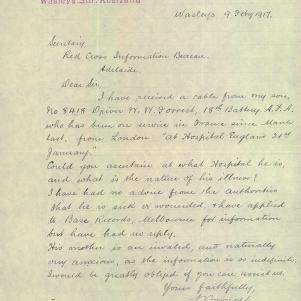 Wasleys. Sth. Australia
Wasleys 9 Feby 1917.
Secretary,
Red Cross Information Bureau.
Adelaide.
Dear Sir,
I have received a cable from my son,
No 8418 Driver W. W. Forrest, 18th Battery A.F.A.
who has been on service in France since March
last, from London "At Hospital England 21st
January."
Could you ascertain at what Hospital he is,
and what is the nature of his illness?
I have had no advice from the authorities
that he is sick or wounded, & have applied
to Base Records, Melbourne for information
but have had no reply.
His mother is an invalid, and naturally
very anxious, as the information is so indefinite,
I would be greatly obliged if you can assist us.
Yours faithfully,